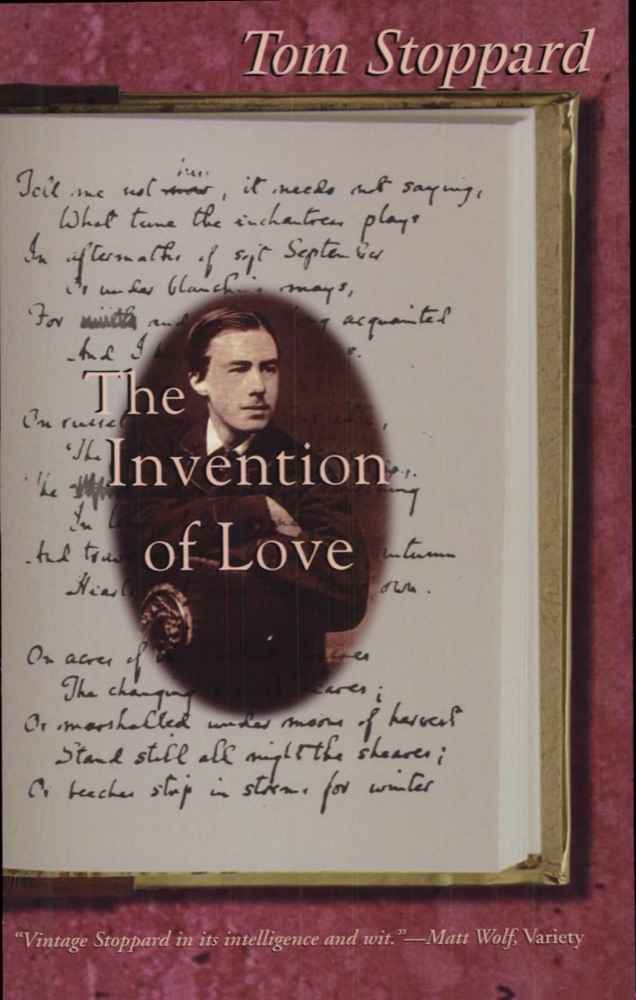 Tom Stoppard
Tell me not , it needs not saying,
What tune the enchantress plays
In aftermaths of soft September
Or under blanching mays,
For and acquainted
And I
The
Invention
of Love
On russet
The
In
And
own.
On acres of
The changing leaves;
Or marshalled under moons of harvest
Stand still all night the sheaves;
Or beeches strip in storms for winter
"Vintage Stoppard in its intelligence and wit."—Matt Wolf, Variety